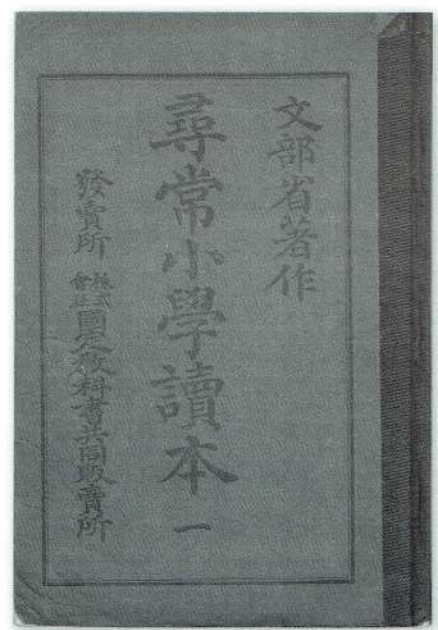 文部省著作
尋常小學讀本 一
發賣所 株式會社 國定教科書共同販賣所